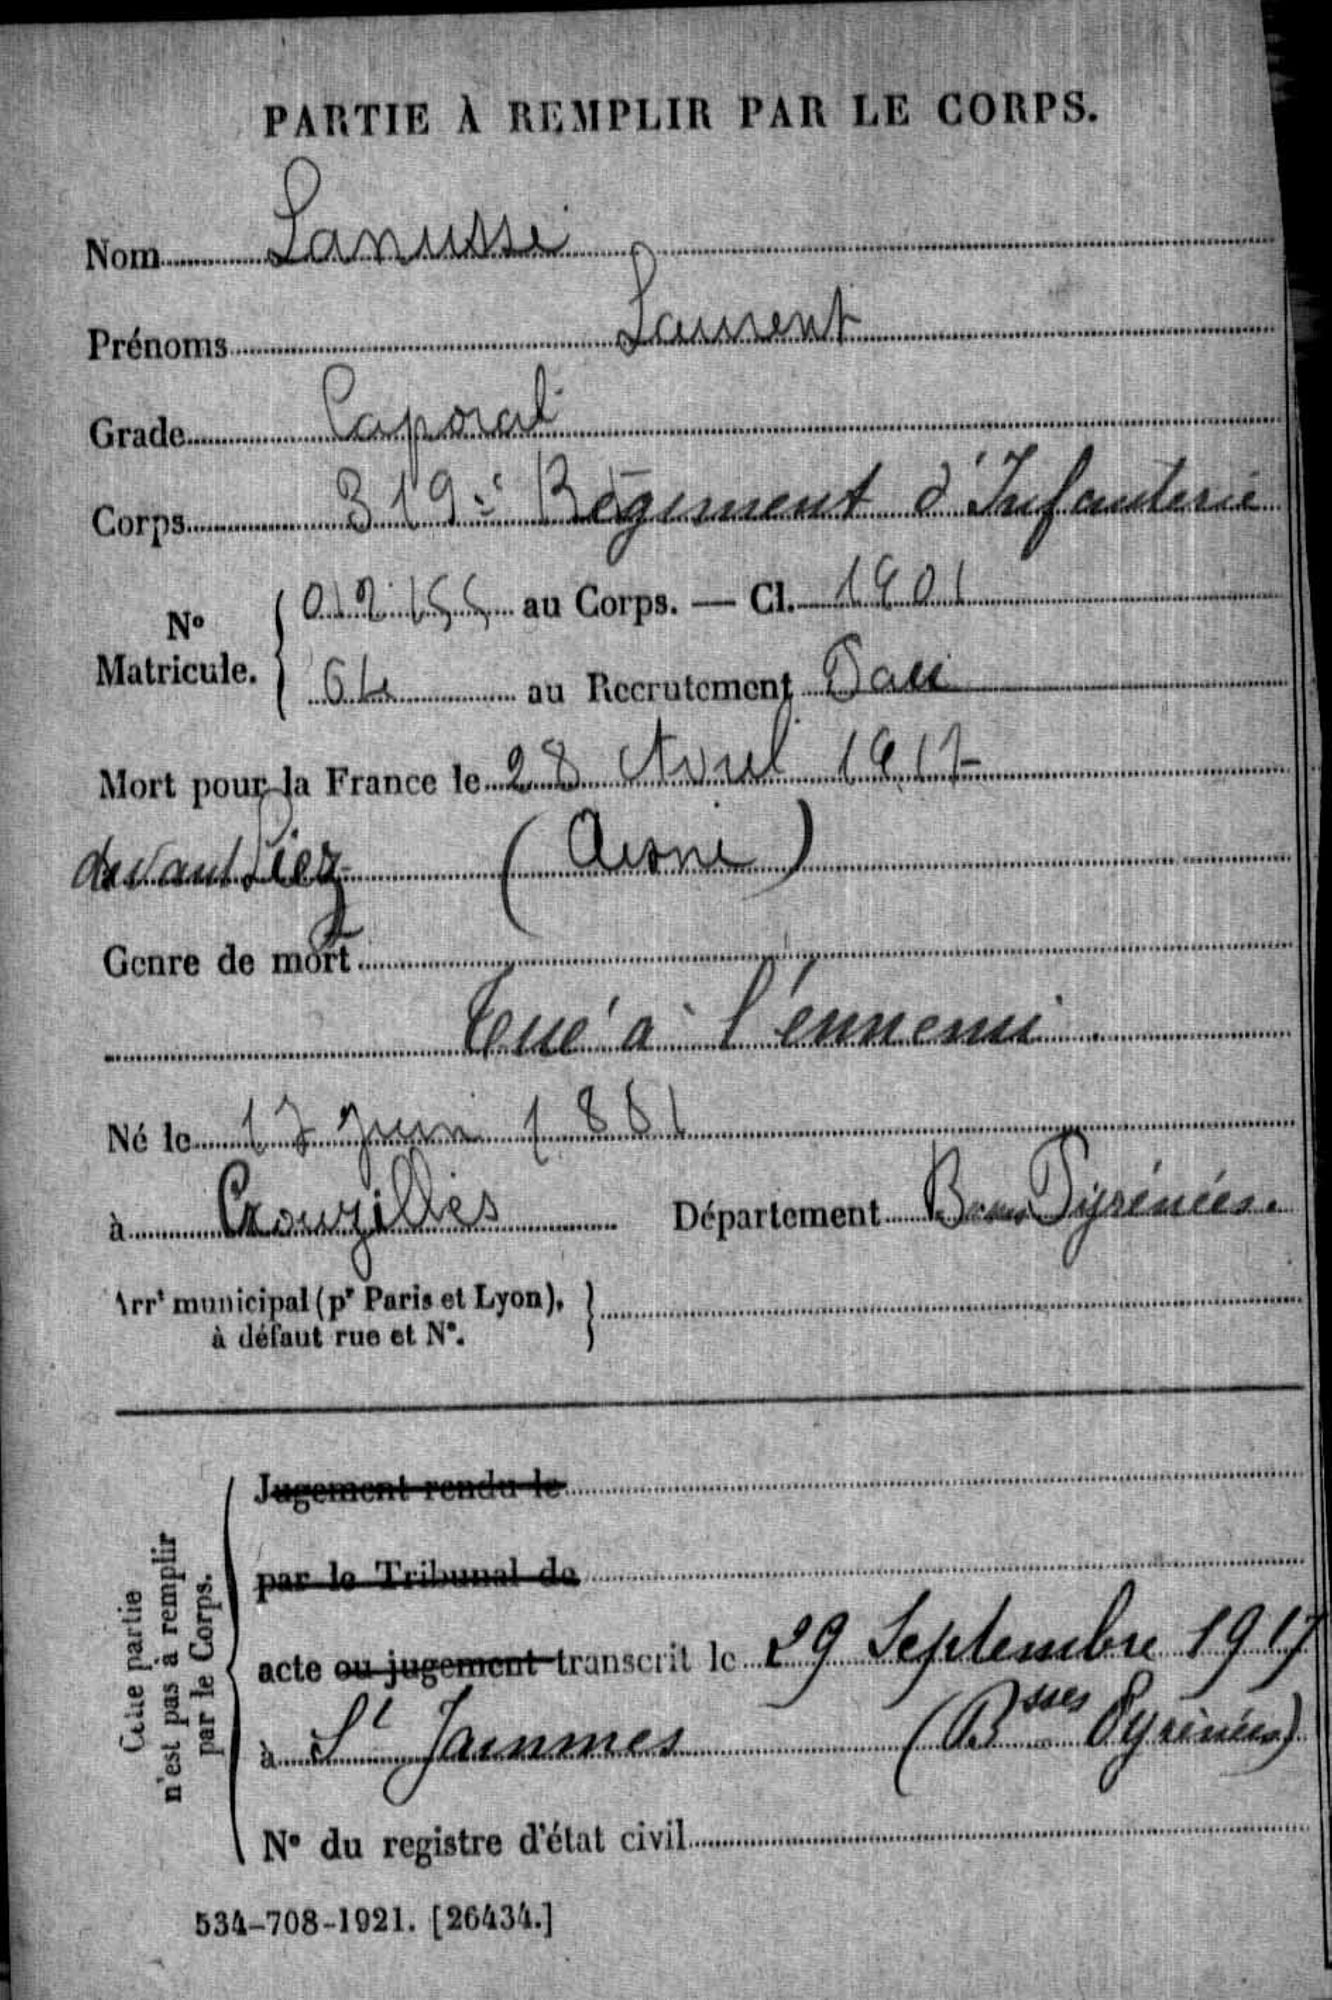 PARTIE À REMPLIR PAR LE CORPS.
Nom Lanusse
Prénoms Laurent
Grade Caporal
Corps 319e Régiment d'Infanterie
No Matricule. { 012155 au Corps. — Cl. 1901
64 au Recrutement Pau
Mort pour la France le 28 Avril 1917
devant Liez (Aisne)
Genre de mort
Tué à l'ennemi
Né le 17 Juin 1881
à Crouzilles Département Basses Pyrénées.
Arrt municipal (pr Paris et Lyon), }
à défaut rue et No.
Cette partie
n'est pas à remplir
par le Corps.
Jugement rendu le
par le Tribunal de
acte ou jugement transcrit le 29 Septembre 1917
à St Jammes (Bsses Pyrénées)
No du registre d'état civil
534-708-1921. [26434.]